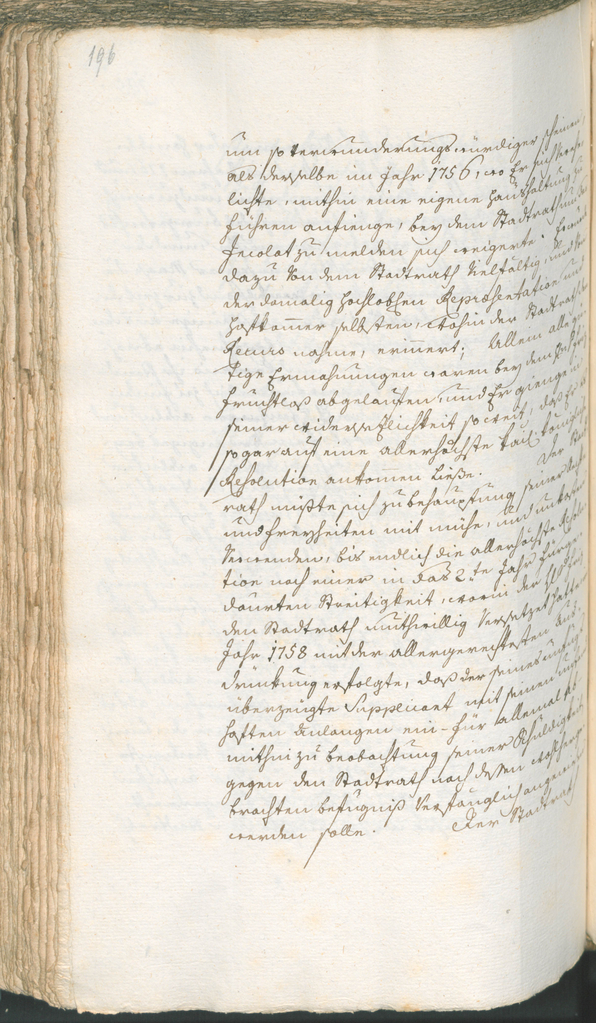 196
um so verwunderungswürdiger scheinen
als derselbe im Jahr 1756, wo Er sich verehe-
lichte, mithin eine eigene Haushaltung zu
führen anfienge, bey dem Stadtrath um den
Incolat zu melden sich weigerte.
dazu von dem Stadtrath vielfältig, und von
der damalig hochlobhen Repræsentation und
Hofkam̄er selbsten, wohin der Stadtrath den
Recurs nahme, erinnert; Allein alle gü-
tige Ermahnungen waren bey dem
fruchtlos abgelaufen, und Er gienge in
seiner widersezlichkeit so weit, daß Er es
sogar auf eine allerhöchste Kais. Königliche
Resolution ankom̄en ließe. Der Stadt-
rath mißte sich zu behauptung seiner Rechte
und Freyheiten mit mühe, und unkosten
verwenden, bis endlich die allerhöchste Resolu-
tion nach einer in das 2te Jahr fürge-
daurten Streitigkeit, worin der
den Stadtrath muthwillig versetzet hatte
Jahr 1758 mit der allergerechtesten Aus-
drückung erfolgte, daß der seines unfugs
überzeugte Supplicant mit seinem
haften Anlangen ein- für allemal ab
mithin zu beobachtung seiner Schuldigkeit
gegen den Stadtrath nach dessen wohlherge-
brachten befugniß verfänglich angewiesen
werden solle. Der Stadtrath